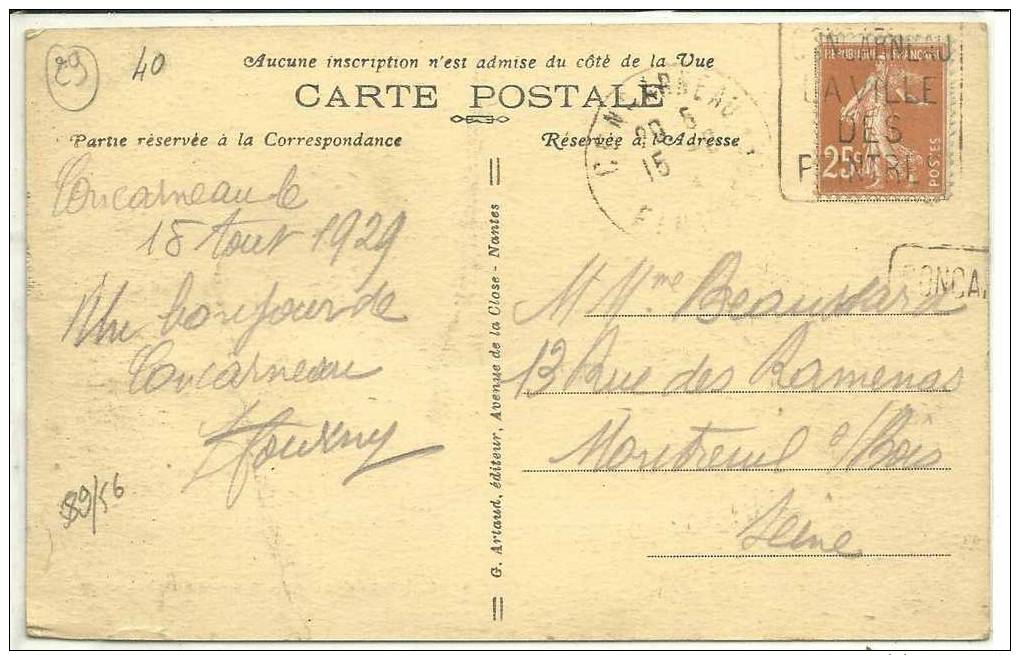 29
40
Aucune inscription n'est admise du côté de la Vue
CARTE POSTALE
Partie réservée à la Correspondance
Réservée à l'Adresse
CONCARNEAU
15
CONCARNEAU
LA VILLE
DES
PEINTRES
REPUBLIQUE FRANÇAISE
25c
POSTES
CONCA
Concarneau le
15 Aout 1929
Un bonjour de
Concarneau
G. Artaud, éditeur, Avenue de la Close - Nantes
M Mme
13 Rue des Ramenas
Montreuil s/Bois
Seine
89/56